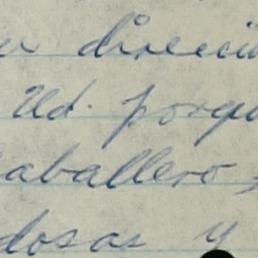 u direcci
Ud. porqu
caballero,
dosas y